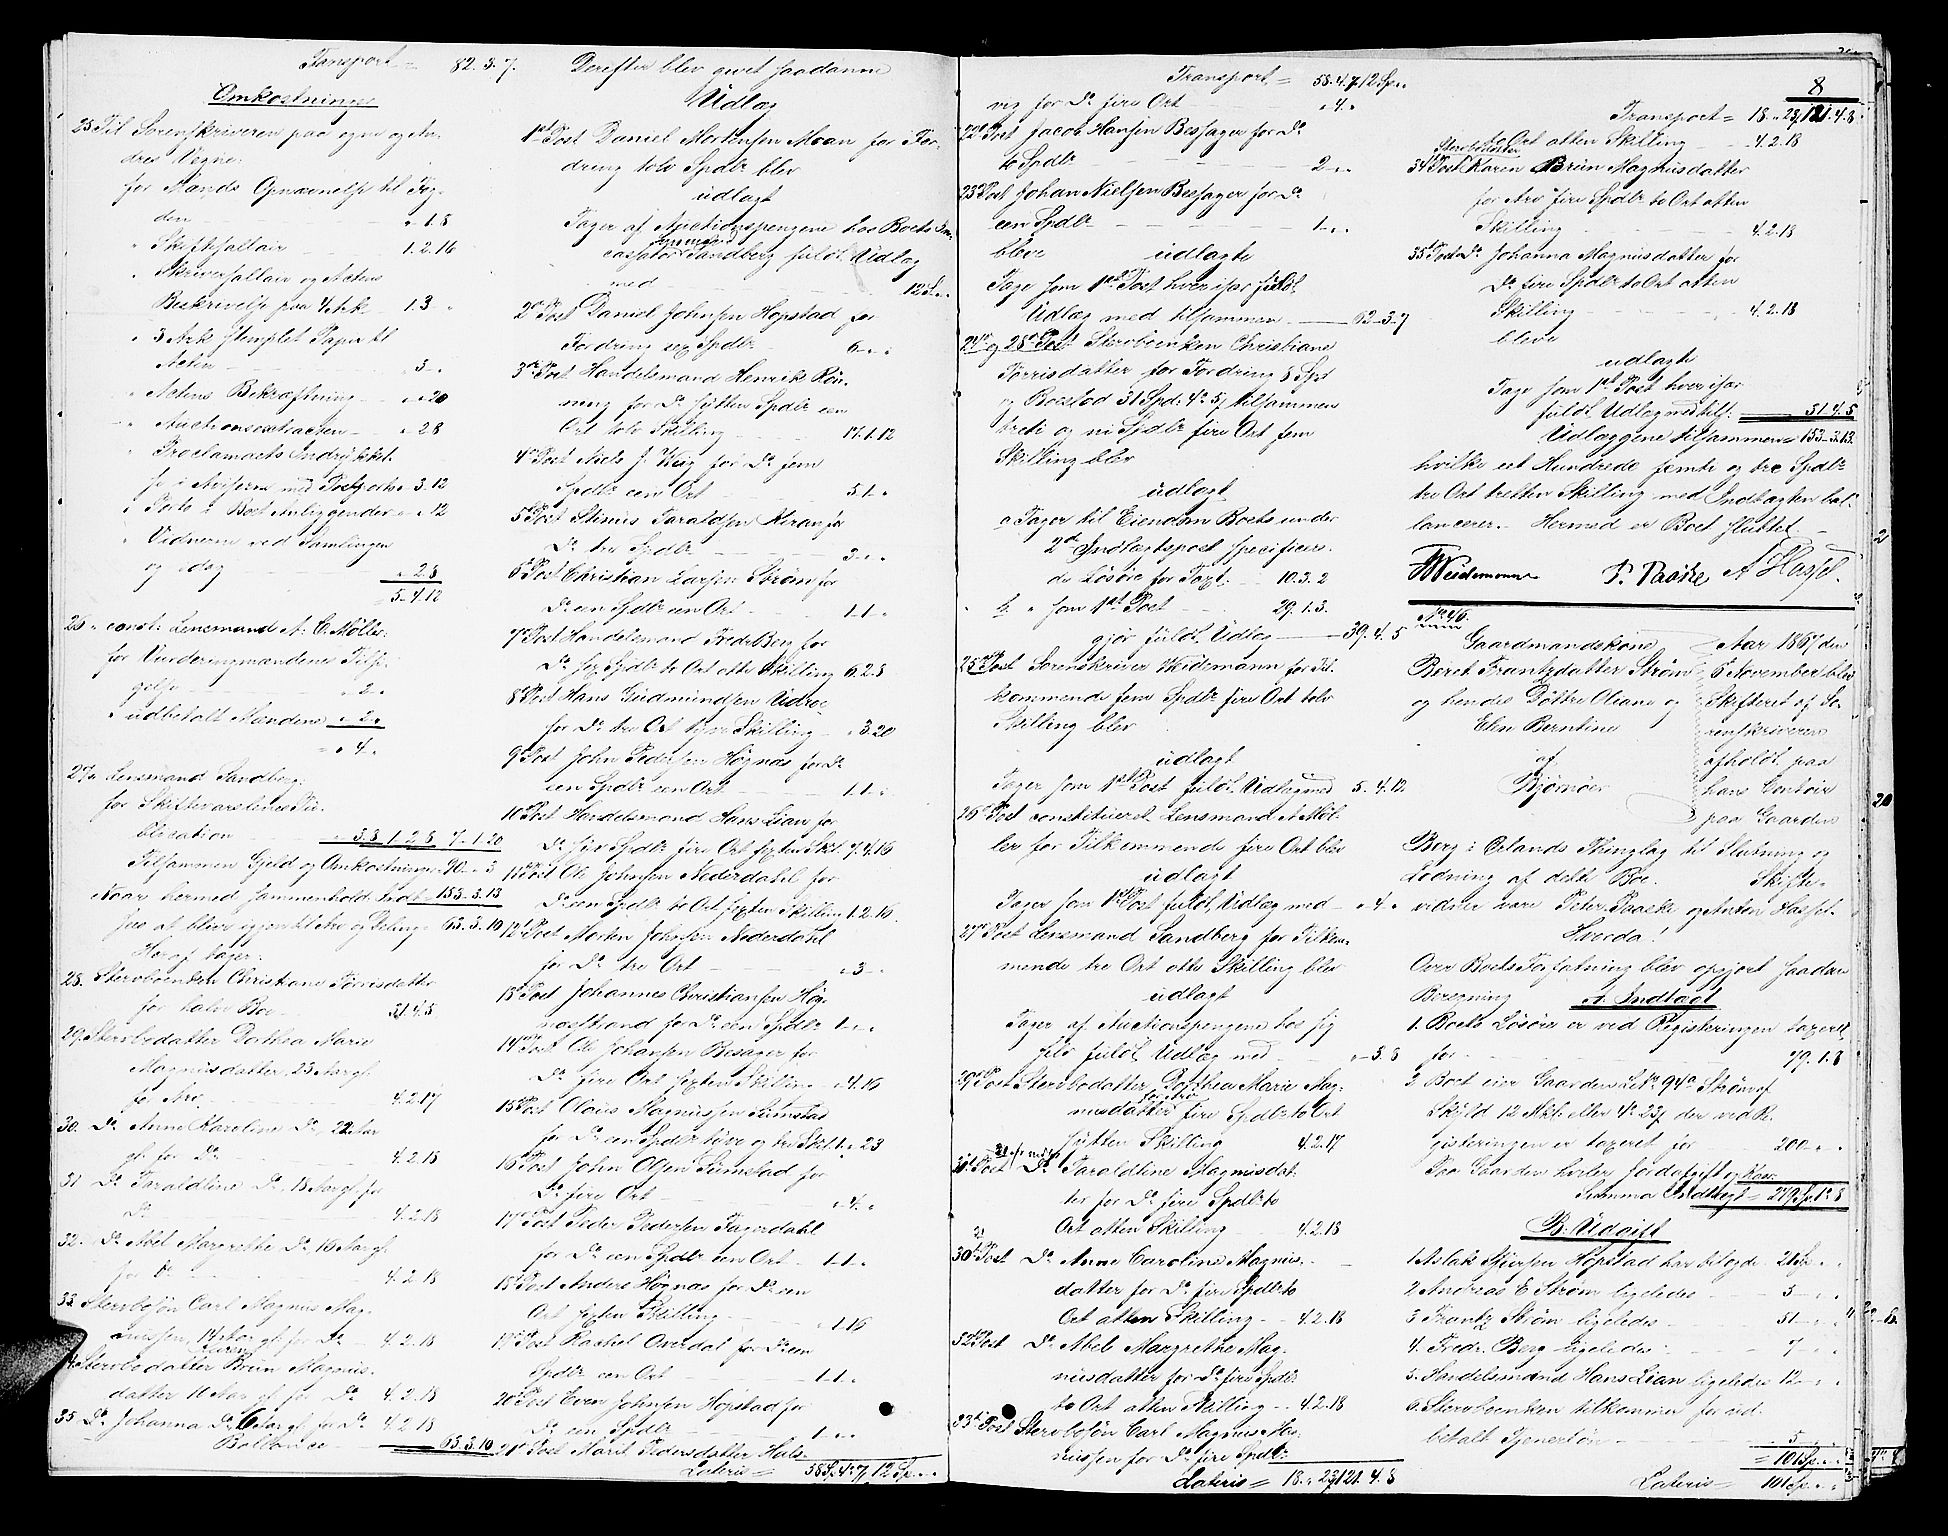 Transport = 82. 3. 7.
Omkostninger
25 Til Sorenskriveren paa egne og An-
dres Vegne:
for Mænds Opnævnelse til Tog-
den - - " 1. 8
" Skiftesallair - - 1. 2. 16
" Skriversallair og Actens
Beskrivelse paa 4 Ark - 1. 3 "
" 3 Ark stemplet Papir til
Acten - - " 3 "
" Actens Bekræftning - " " 20
" Auctionsextracten - " 28
" Proclamaets Indrykkel-
se i Aviserne med Postporto " 3. 12
" Porto i Boet Anliggender " " 12
" Vidnerne ved Samlingen
og idag - - " 2. 8
5. 4. 12
26 " const: Lensmand A: C. Möller:
for Vurderingsmændenes Tilsi-
gelse - - " 2 "
" udbetalt Mændene " 2 "
= " 4 "
27 " Lensmand Sandberg:
for Skiftevarslenes Pu-
blication - " 3. 8 1. 2. 8 7. 1. 20
Tilsammen Gjeld og Omkostninger 90. " 3
Naar hermed sammenholdt Indt. 153. 3. 13
sees at blive igjen til Arv og Deling = 63. 3. 10
Heraf tager:
28. Stervboenken Christiane Torrisdatter
for halv Boe - 31. 4. 5
29. Stervbodatter Dorthea Marie
Magnusdatter, 23 Aar gl.
for Arv - - 4. 2. 17
30. Do Anne Karoline Do, 22 Aar
gl. for Do - - 4. 2. 18
31 Do Taraldline Do, 18 Aar gl. for
Do - - 4. 2. 18
32. Do Abel Margrethe Do 16 Aar gl.
for Do - - 4. 2. 18
33. Stervbosön Carl Magnus Mag-
nussen, 14 Aar gl. for Do - 4. 2. 18
34 Stervbodatter Karen Brun Magnus-
datter 11 Aar gl. for Do 4. 2. 18
35 Do Johanna Do, 6 Aar gl. for Do 4. 2. 18
Ballance 63. 3. 10
Derefter blev givet saadanne
Udlæg
1ste Post Daniel Mortensen Moan for For-
dring tolv Spdlr blev
udlagt
Tager af Auctionspengene hos Boets In-
cassator Lensmand Sandberg fuldt Udlæg
med - - 12 Sp. " "
2den Post Daniel Johnsen Hopstad for
Fordring sex Spdlr - 6 " "
3die Post Handelsmand Henrik Rön-
ning for Do sytten Spdlr een
Ort tolv Skilling - - 17. 1. 12
4de Post Niels J. Krig for Do fem
Spdlr een Ort - - 5. 1. "
5te Post Stinius Taraldsen Meran for
Do tre Spdlr - - 3. " "
6te Post Christian Larsen Ström for
Do een Spdlr een Ort - - 1. 1. "
7de Post Handelsmand Fredr. Berg for
Do sex Spdlr to Ort otte Skilling 6. 2. 8
8de Post Hans Gudmundsen Udroe
for Do tre Ort tyve Skilling - " 3. 20
9de Post John Pedersen Högnæs for Do
een Spdlr een Ort - - 1. 1. "
10 Post Handelsmand Hans Lian for
Do syv Spdlr fire Ort sexten Skl. 7. 4. 16
11 Post Ole Johnsen Nederdahl for
Do een Spdlr to Ort sexten Skilling 1. 2. 16
12 Post Morten Johnsen Nederdahl
for Do tre Ort - - " 3 "
13 Post Johannes Christiansen Hög-
næsstrand for Do een Spdlr 1. " "
14 Post Ole Johansen Besager for
Do fire Ort sexten Skilling - " 4. 16
15 Post Claus Magnussen Sumstad
for Do een Spdlr tyve og tre Skill. 1. " 23
16 Post John Olsen Sumstad for
Do fire Ort - - " 4. "
17 Post Peder Pedersen Fagerdahl
for Do een Spdlr een Ort - 1. 1. "
18 Post Anders Högnæs for Do een
Ort sexten Skilling - - " 1. 16
19 Post Rachel Overdal for Do een
Spdlr een Ort - - 1. 1. "
20 Post Even Johnsen Hopstad for
Do een Spdlr - - 1. " "
21 Post Marit Pedersdatter Huls-
Lateris = 58 Sp. 4 o 7 s 12 Sp. " "
Transport = 58. 4. 7 12 Sp. " "
vig for Do fire Ort - " 4. "
22 Post Jacob Hansen Bessager for Do
to Spdlr - - 2 " "
23 Post Johan Nielsen Bessager for Do
een Spdlr - - 1. " "
bleve udlagte
Tage som 1ste Post hver især fuldt
Udlæg med tilsammen - 62. 3. 7
24de og 28de Post Stervboenken Christiane
Torrisdatter for Fordring 8 Spd
og Boeslod 31 Spd: 4 o 5 s tilsammen
treti og ni Spdlr fire Ort fem
Skilling blev
udlagt
a Tager til Eiendom Boets under
2den Indtægtspost specificere-
de Lösöre for Taxt - 10. 3. 2
b. " som 1ste Post - 29. 1. 3.
gjör fuldt Udlæg - 39. 4. 5
25de Post Sorenskriver Weidemann for Til-
kommende fem Spdlr fire Ort tolv
Skilling blev
udlagt
Tager som 1ste Post fuldt Udlæg med 5. 4. 12
26de Post constitueret Lensmand A Möl-
ler for Tilkommende fire Ort blev
udlagt
Tager som 1ste Post fuldt Udlæg med - " 4. "
27de Post Lensmand Sandberg for Tilkom-
mende tre Ort otte Skilling blev
udlagt
Tager af Auctionspengene hos sig
selv fuldt Udlæg med - " 3. 8
29de Post Stervbodatter Dorthea Marie Mag-
nusdatter for Arv fire Spdlr to Ort
sytten Skilling 4. 2. 17
31te Post Do Taraldline Magnusdat-
ter for Do fire Spdlr to
Ort atten Skilling - 4. 2. 18
30te Post Do Anne Caroline Magnus-
datter for Do fire Spdlr to
Ort atten Skilling - 4. 2. 18
32te Post Do Abel Margrethe Mag-
nusdatter for Do fire Spdlr
to Ort atten Skilling - 4. 2. 18
33te Post Stervbosön Carl Magnus Mag-
nussen for Do fire Spdlr
Lateris = 18. " 23 121. 4. 8
8
Transport = 18. " 23 121. 4. 8
to Ort atten Skilling - 4. 2. 18
34 Post Stervbodatter Karen Brun Magnusdatter
for Arv fire Spdlr to Ort atten
Skilling - - 4. 2. 18
35te Post Do Johanna Magnusdatter for
Do fire Spdlr to Ort atten
Skilling - - 4. 2. 18
bleve
udlagte
Tage som 1ste Post hver især
fuldt Udlæg med tils. - 31. 4. 5
Udlæggene tilsammen = 153. 3. 13.
hvilke eet Hundrede femti og tre Spdlr
tre Ort tretten Skilling med Indtægten bal-
lancerer. Hermed er Boet sluttet. -
Weidemann P. Paaske A Hassel.
No 46.
Gaardmandskone
Beret Frantzdatter Ström
og hendes Döttre Oliane og
Elen Berntine
af
Bjørnöer
Aar 1867 den
6te November blev
Skifteret af So-
renskriveren
afholdt paa
hans Contoir
paa Gaarden
Berg i Ørlands Thinglag til Slutning og
Lodning af dette Boe. Skifte-
vidner vare Peter Paaske og Anton Hassel.
Hvorda!
Over Boets Forfatning blev opgjort saadan
Beregning A. Indtægt
1. Boets Lösöre er ved Registeringen taxeret
for - - 79. 1. 8
2 Boet eier Gaarden L. No 94a Ström af
Skyld 12 Mkl. eller 4 o 23 s der ved Re-
gisteringen er taxeret for 200 " "
Paa Gaarden hviler Jordafgift og Kaar.
Summa Indtægt = 279 Sp 1 o 8
B: Udgift
1. Aslak Sjursen Hopstad har tilgode - 21 Sp. " "
2 Andreas E Ström ligeledes - 5 - " "
3 Frantz Ström ligeledes - 51 - " "
4. Fredr: Berg ligeledes - 7 - " "
5. Handelsmand Hans Lian ligeledes 12 " "
6. Stervboenken tilkommer for ud-
betalt Tjenerlön - 5
= 101 Sp. " "
Lateris = 101 Sp. " "